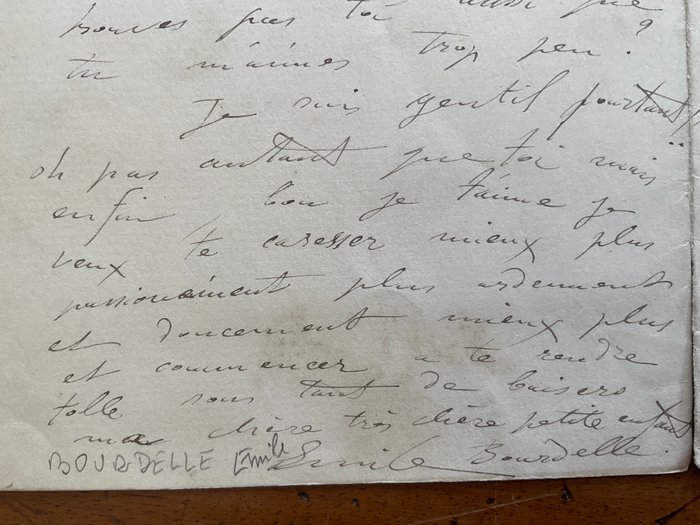 trouves pas toi aussi que
tu m'aimes trop peu ?
Je suis gentil pourtant,
oh pas autant que toi mais
enfin, bon je t'aime je
veux te caresser mieux plus
passionément plus ardemment
et doucement mieux plus
et commencer a te rendre
folle sous tant de baisers
ma chère très chère petite enfant
Emile Bourdelle.
BOURDELLE Emile